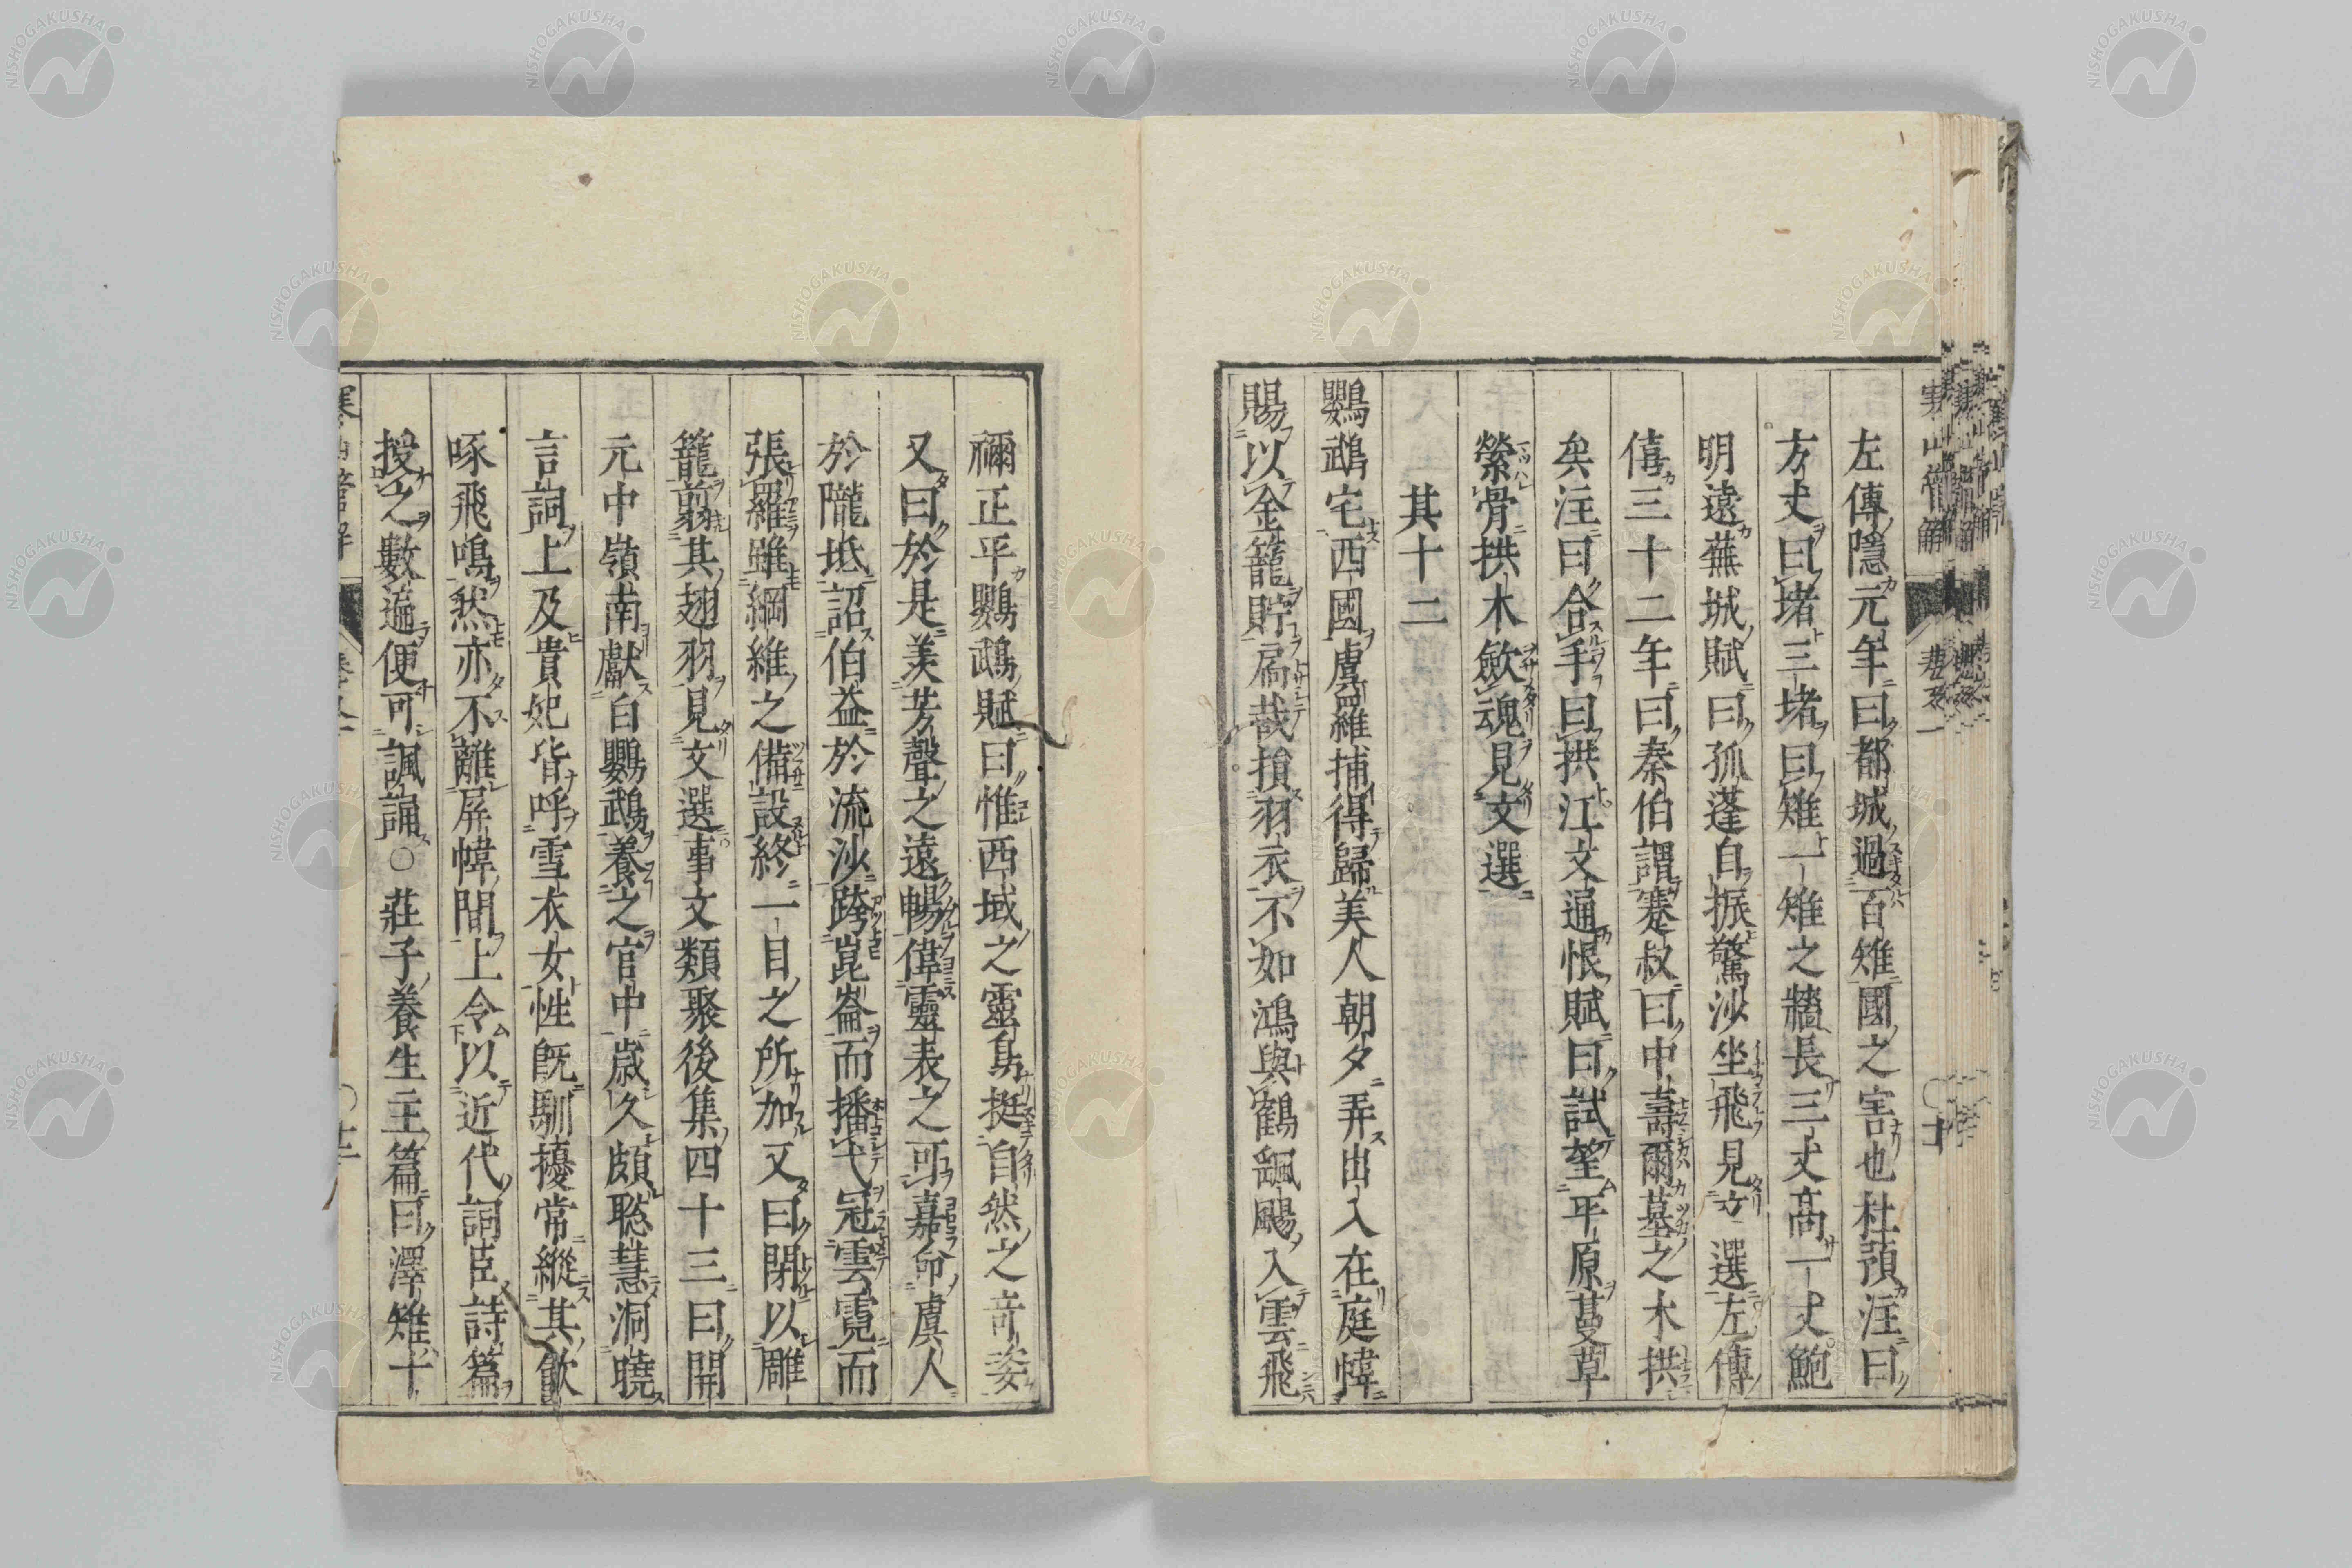 左傳隱元年曰都城過百雉國之害也杜預注曰
方丈曰堵三堵曰雉一雉之牆長三丈高一丈鮑
明遠蕪城賦曰孤蓬自振驚沙坐飛見文選左傳
僖三十二年曰秦伯謂蹇叔曰中壽爾墓之木拱
矣注曰合手曰拱江文通恨賦曰試望平原蔓草
縈骨拱木斂魂見文選
其十二
鸚鵡宅西國虞羅捕得歸美人朝夕弄出入在庭幃
賜以金籠貯扃哉損羽衣不如鴻與鶴颻颺入雲飛
禰正平鸚鵡賦曰惟西域之靈鳥挺自然之奇姿
又曰於是羨芳聲之遠暢偉靈表之可嘉命虞人
於隴坻詔伯益於流沙跨崑崙而播弋冠雲霓而
張羅雖綱維之備設終一目之所加又曰閉以雕
籠剪其翅羽見文選事文類聚後集四十三曰開
元中嶺南獻白鸚鵡養之宮中歲久頗聡慧洞曉
言詞上及貴妃皆呼雪衣女性既馴擾常縱其飲
啄飛鳴然亦不離屏幃間上令以近代詞臣詩篇
授之數遍便可諷誦〇莊子養生主篇曰澤雉十
NISHOGAKUSHA